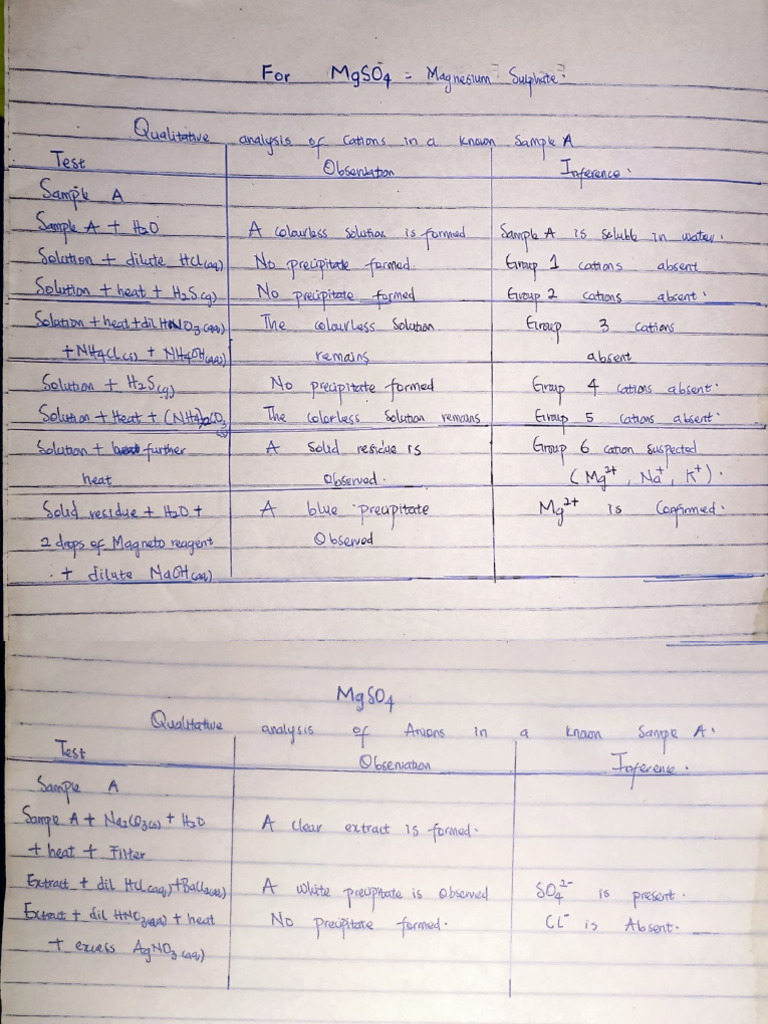 For MgSO4 = Magnesium Sulphate.
Qualitative analysis of Cations in a known Sample A
Test Observation Inference.
Sample A
Sample A + H2O A colourless solution is formed Sample A is soluble in water.
Solution + dilute HCl(aq) No precipitate formed. Group 1 cations absent
Solution + heat + H2S(g) No precipitate formed Group 2 cations absent.
Solution + heat + dil HNO3(aq) The colourless Solution Group 3 cations
+ NH4Cl(s) + NH4OH(aq) remains absent
Solution + H2S(g) No precipitate formed Group 4 cations absent.
Solution + Heat + (NH4)2CO3 The colorless Solution remains Group 5 cations absent.
Solution + further A Solid residue is Group 6 cation suspected
heat Observed. (Mg2+, Na+, K+).
Solid residue + H2O + A blue precipitate Mg2+ is Confirmed.
2 drops of Magneto reagent Observed
+ dilute NaOH(aq)
MgSO4
Qualitative analysis of Anions in a known Sampe A.
Test Observation Inference.
Sample A
Sample A + Na2CO3(s) + H2O A clear extract is formed.
+ heat + Filter
Extract + dil HCl(aq) + BaCl2(aq) A white precipitate is Observed SO4 2- is present.
Extract + dil HNO3(aq) + heat No precipitate formed. Cl- is Absent.
+ excess AgNO3(aq)